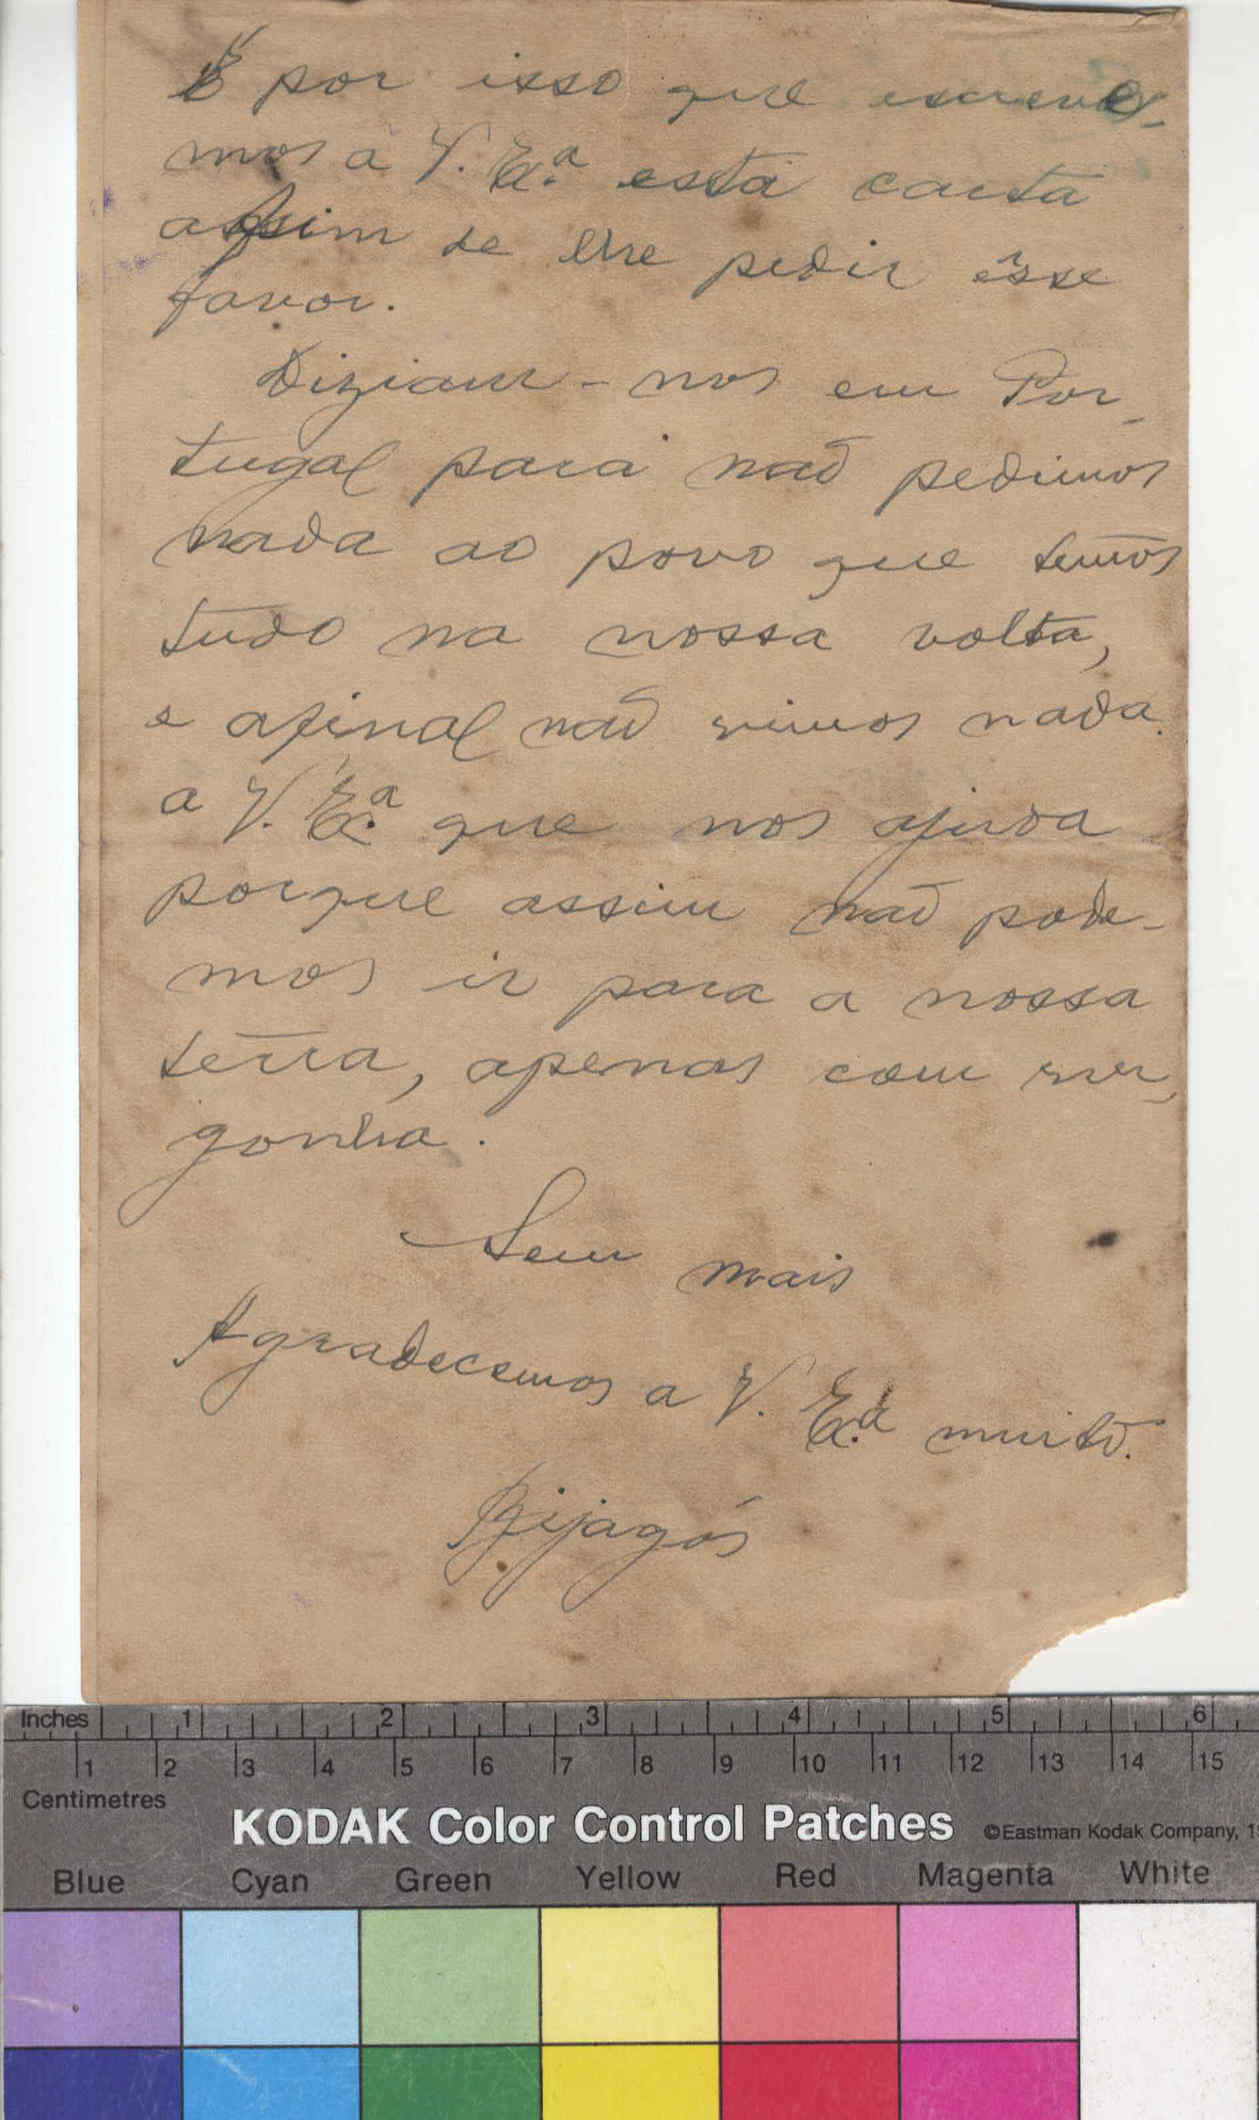 É por isso que escreve-
mos a V. Ex.ª esta carta
afim de lhe pedir êsse
favor.
Diziam-nos em Por-
tugal para não pedimos
nada ao povo que temos
tudo na nossa volta,
e afinal não vimos nada.
a V. Ex.ª que nos ajuda
porque assim não pode-
mos ir para a nossa
terra, apenas com ver-
gonha.
Sem mais
Agradecemos a V. Ex.ª muito.
Bijagós
Inches 1 2 3 4 5 6
1 2 3 4 5 6 7 8 9 10 11 12 13 14 15
Centimetres
KODAK Color Control Patches ©Eastman Kodak Company,
Blue Cyan Green Yellow Red Magenta White